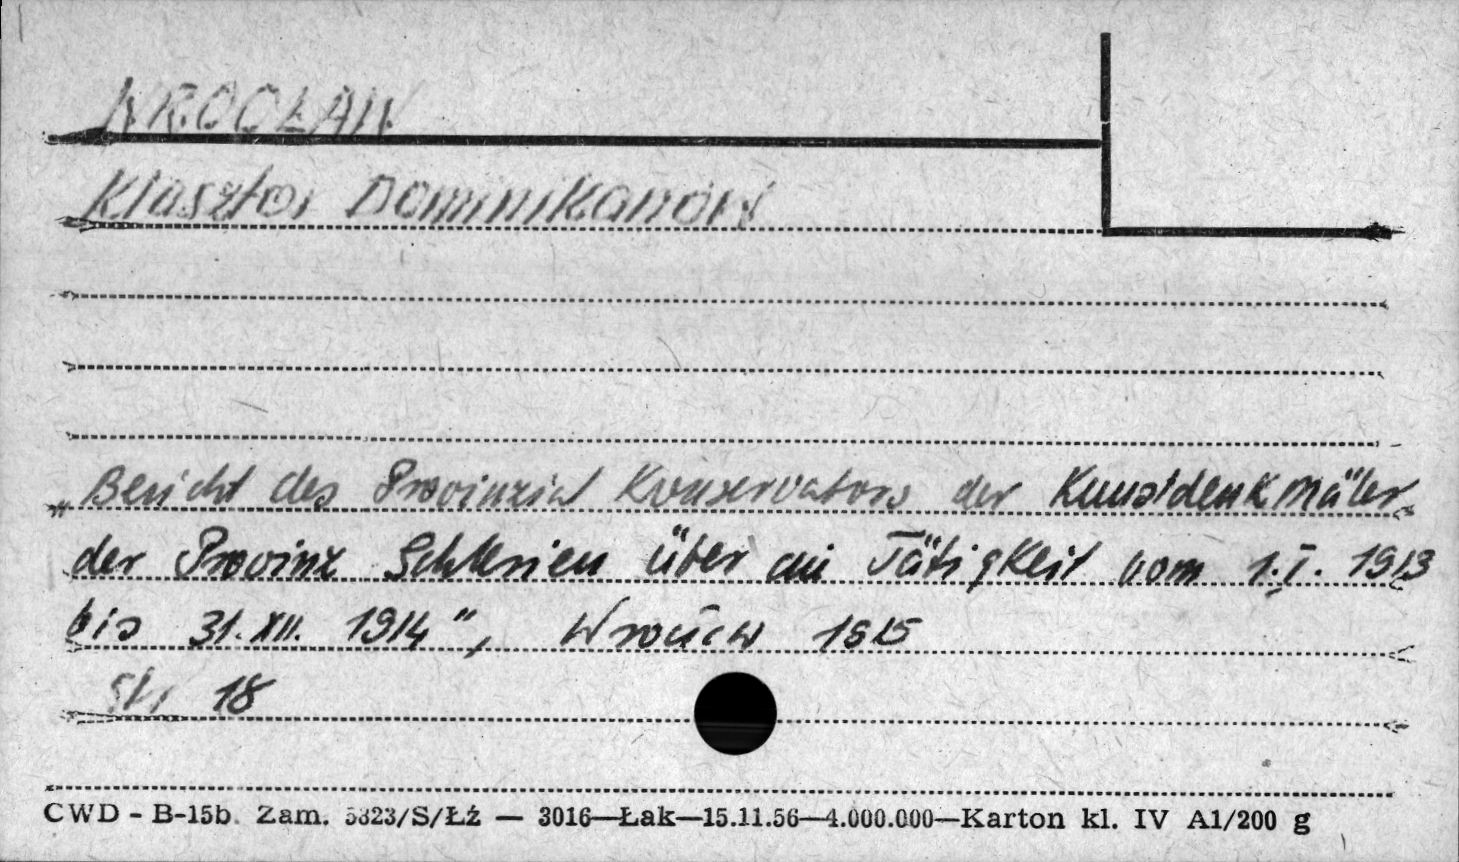 WROCŁAW
Klasztor Dominikanów
„Bericht des Provinzial Konservators der Kunstdenkmäler
der Provinz Schlesien über die Tätigkeit vom 1.I. 1913
bis 31.XII. 1914", Wrocław 1915
Str 18
CWD - B-15b. Zam. 5323/S/Łź — 3016—Łak—15.11.56—4.000.000—Karton kl. IV A1/200 g